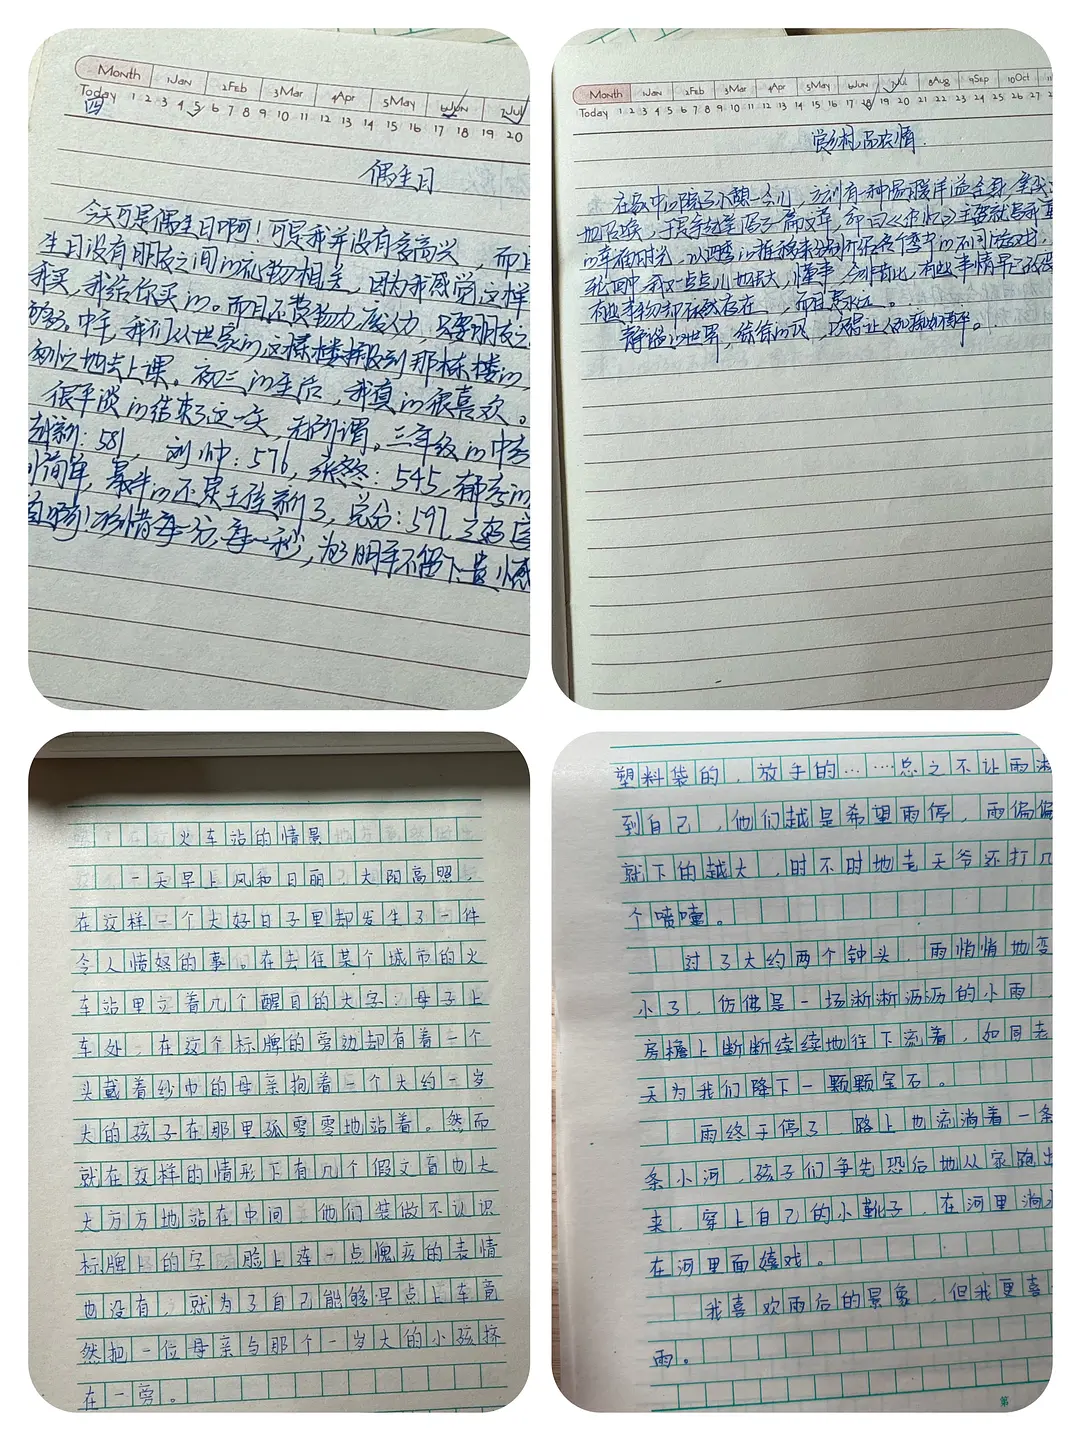 Month 1Jan 2Feb 3Mar 4Apr 5May 6Jun 7Jul
Today 1 2 3 4 5 6 7 8 9 10 11 12 13 14 15 16 17 18 19 20
四
偶生日
今天可是偶生日啊！可是我并没有多高兴，而且
生日没有朋友之间的礼物相关，因为我感觉这样
我买，我给你买的。而且还费物力，废人力，只要朋友之
够多。中午，我们从世家的这栋楼搬到那栋楼的，
地去上课。初三的生活，我真的很喜欢。
很平淡的结束了这一天，无所谓。三年级的中考
新：581，刘帅：576，张 ：545，都考的
简单，最牛的还是王佳新了，总分：597，
珍惜每一分每一秒，为了明年不留下遗憾
Month 1Jan 2Feb 3Mar 4Apr 5May 6Jun 7Jul 8Aug 9Sep 10Oct 11
Today 1 2 3 4 5 6 7 8 9 10 11 12 13 14 15 16 17 18 19 20 21 22 23 24 25 26 27 2
赏乡村，品农情
在家中的院子小憩一会儿，立刻有一种温暖洋溢全身，
，于是亲题笔写了一篇文章，即曰《 归》主要就写我
的幸福时光，以四季的推移来分别介绍各个季节的不同游戏，
轮回中，我一点点儿地长大，懂事，今非昔比，有些事情早已改变
有些事物却依然存在，而且 。
静谧的世界，徐徐的风， 让人 。
火车站的情景
一天早上风和日丽，太阳高照，
在这样一个大好日子里却发生了一件
令人愤怒的事。在去往某个城市的火
车站里立着几个醒目的大字：母子上
车处，在这个标牌的旁边却有着一个
头戴着纱巾的母亲抱着一个大约一岁
大的孩子在那里孤零零地站着。然而
就在这样的情形下有几个假文盲也大
大方方地站在中间，他们装做不认识
标牌上的字，脸上连一点愧疚的表情
也没有，就为了自己能够早点上车竟
然把一位母亲与那个一岁大的小孩挤
在一旁。
塑料袋的，放手的……总之不让雨淋
到自己，他们越是希望雨停，雨偏偏
就下的越大，时不时地老天爷还打几
个喷嚏。
过了大约两个钟头，雨悄悄地变
小了，仿佛是一场淅淅沥沥的小雨，
房檐上断断续续地往下流着，如同老
天为我们降下一颗颗宝石。
雨终于停了，路上也流淌着一条
条小河，孩子们争先恐后地从家跑出
来，穿上自己的小靴子，在河里淌水
在河里面嬉戏。
我喜欢雨后的景象，但我更喜
雨。
第